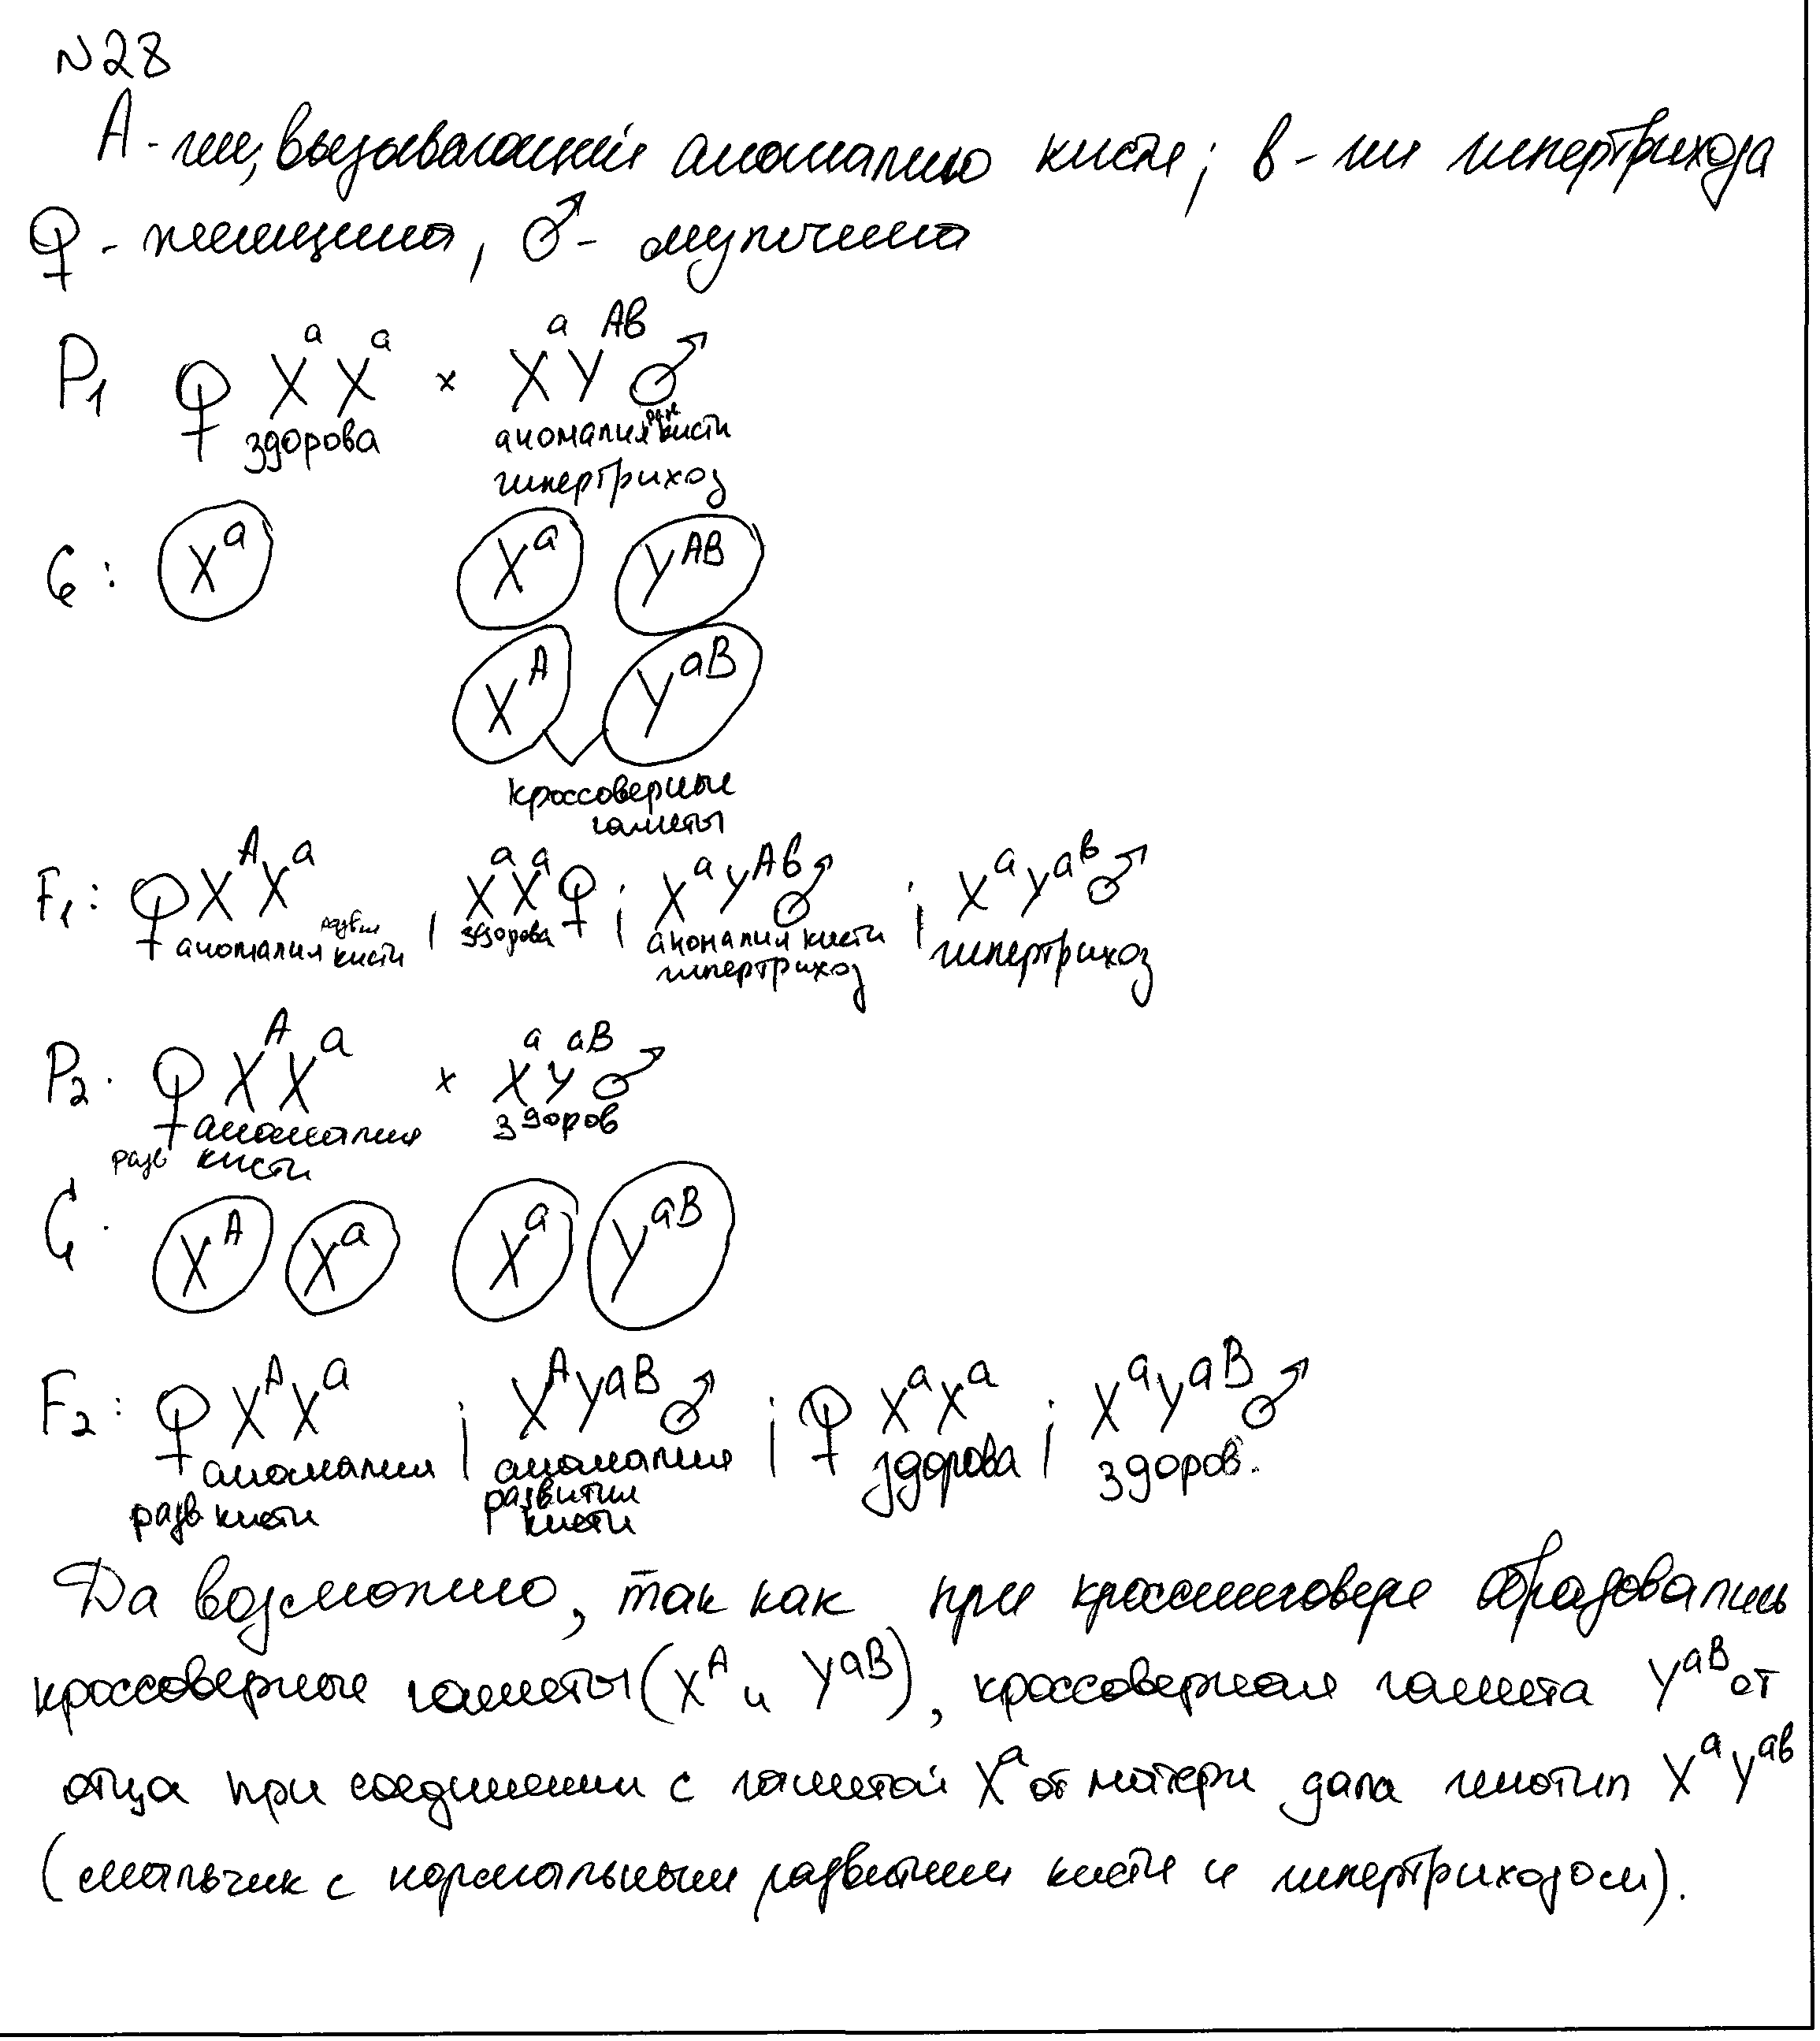 N28
А - ген, вызывающий аномалию кисти; в - ген гипертрихоза
♀ - женщина, ♂ - мужчина
P₁ ♀ XᵃXᵃ × XᵃYᴬᵇ ♂
здорова аномалия разв кисти
гипертрихоз
G: Xᵃ Xᵃ Yᴬᴮ
Xᴬ Yᵃᴮ
кроссоверные
гаметы
F₁: ♀ XᴬXᵃ, XᵃXᵃ ♀; XᵃYᴬᵇ ♂; XᵃYᵃᵇ ♂
аномалия развит кисти здорова аномалия кисти гипертрихоз
гипертрихоз
P₂. ♀ XᴬXᵃ × XᵃYᵃᴮ ♂
аномалия здоров
разв кисти
G. Xᴬ Xᵃ Xᵃ Yᵃᴮ
F₂: ♀ XᴬXᵃ; XᴬYᵃᴮ ♂; ♀ XᵃXᵃ; XᵃYᵃᴮ ♂
аномалия аномалия здорова здоров.
разв кисти развития
кисти
Да возможно, так как при кроссинговере образовались
кроссоверные гаметы (Xᴬ и Yᵃᴮ), кроссоверная гамета Yᵃᴮ от
отца при соединении с гаметой Xᵃ от матери дала генотип XᵃYᵃᵇ
(мальчик с нормальным развитием кисти и гипертрихозом).